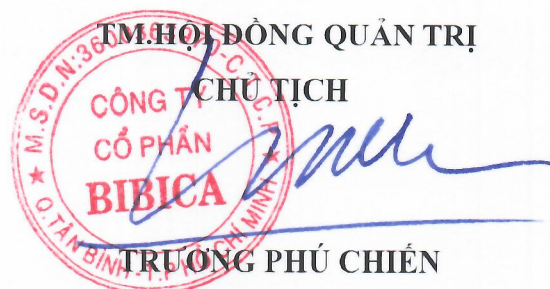 TM.HỘI ĐỒNG QUẢN TRỊ
CHỦ TỊCH
CÔNG TY
CỔ PHẦN
BIBICA
Q.TÂN BÌNH - T.P HỒ CHÍ MINH
TRƯƠNG PHÚ CHIẾN